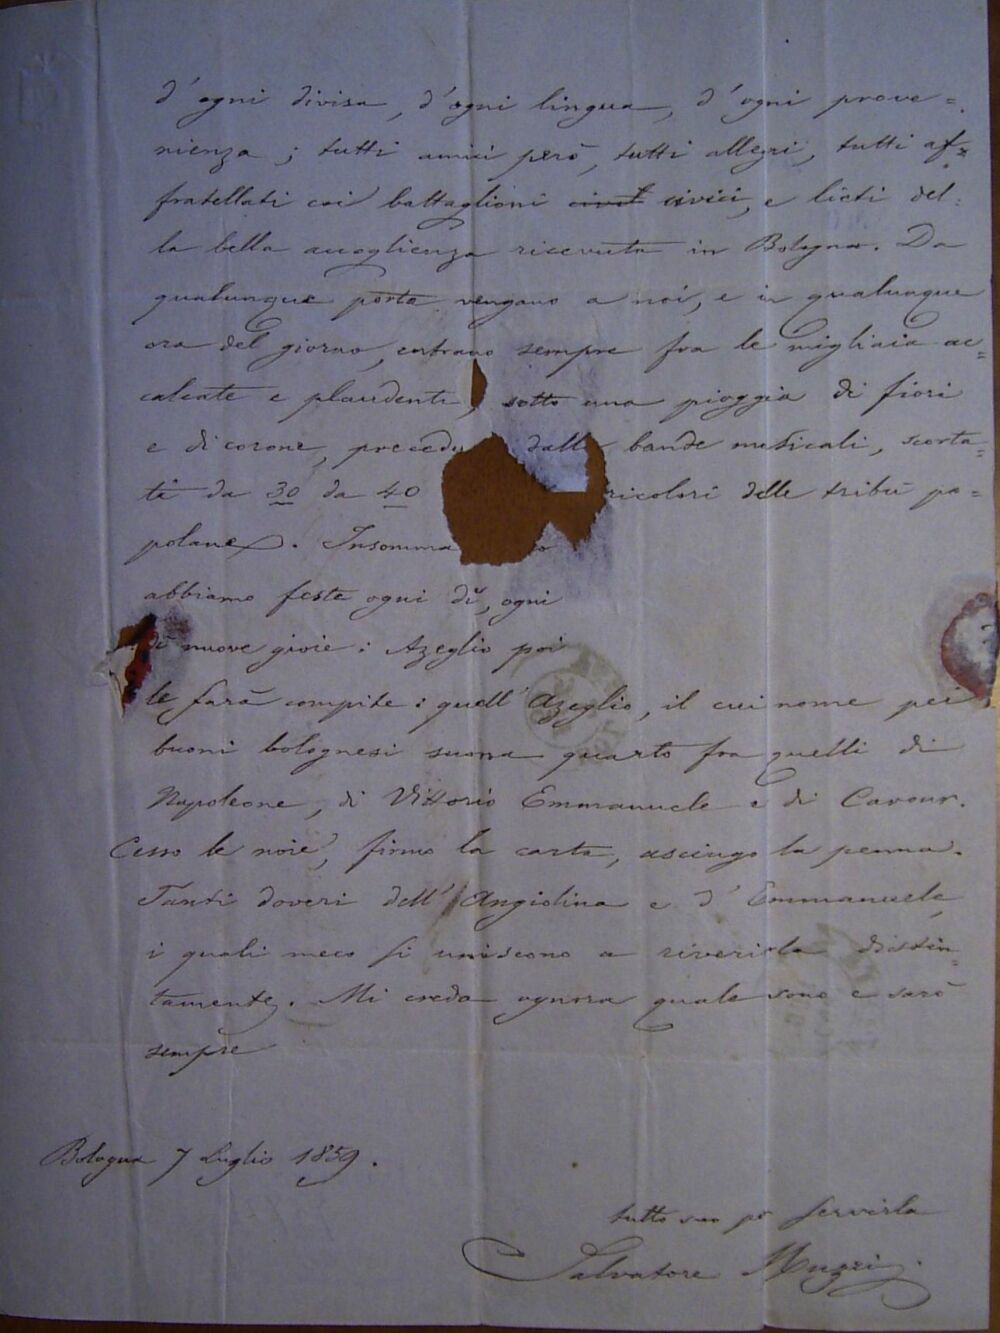 d'ogni divisa, d'ogni lingua, d'ogni prove=
nienza; tutti amici però, tutti allegri, tutti af=
fratellati coi battaglioni civici, e lieti del=
la bella accoglienza ricevuta in Bologna. Da
qualunque porta vengano a noi, e in qualunque
ora del giorno, entrano sempre fra le migliaia ac=
calcate e plaudenti, sotto una pioggia di fiori
e di corone, precedu dalle bande musicali, scorta=
ti da 30 da 40 ricolori delle tribù po=
polane. Insomma
abbiamo feste ogni dì, ogni
dì nuove gioie: Azeglio poi
le farà compite: quell'Azeglio, il cui nome pei
buoni bolognesi suona quarto fra quelli di
Napoleone, di Vittorio Emmanuele e di Cavour.
Cesso le noie, firmo la carta, asciugo la penna.
Tanti doveri dell'Angiolina e d'Emmanuele,
i quali meco si uniscono a riverirla distin=
tamente. Mi creda ognora quale sono e sarò
sempre
Bologna 7 Luglio 1859.
tutto suo per servirla
Salvatore Muzzi